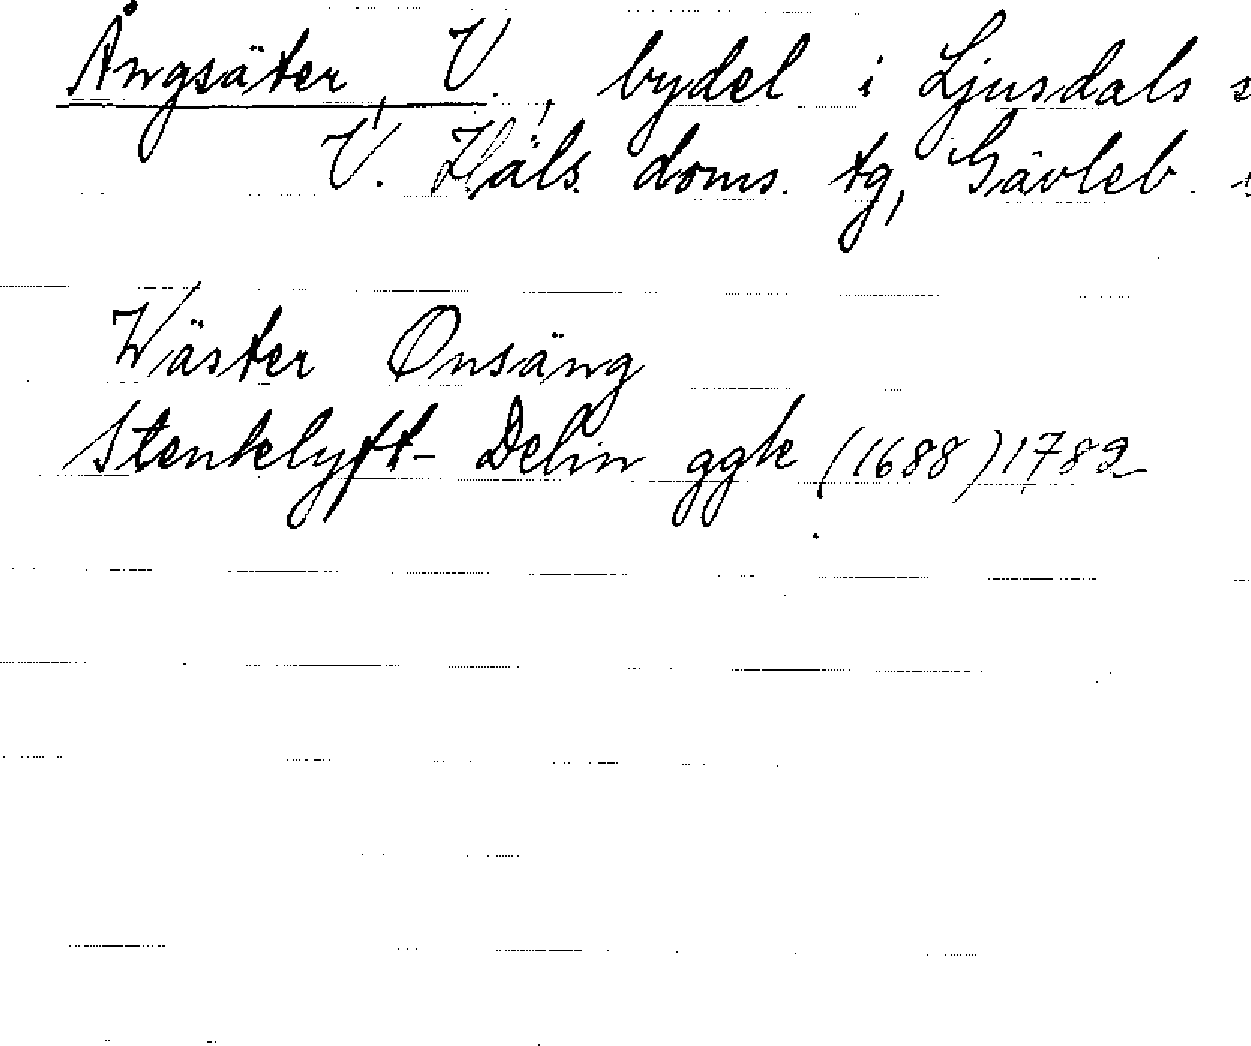 Ångsäter, V., bydel i Ljusdals s
V. Häls. doms. tg, Gävleb.
Wäster Onsäng
Stenklyft- Delin ggk (1688) 1782